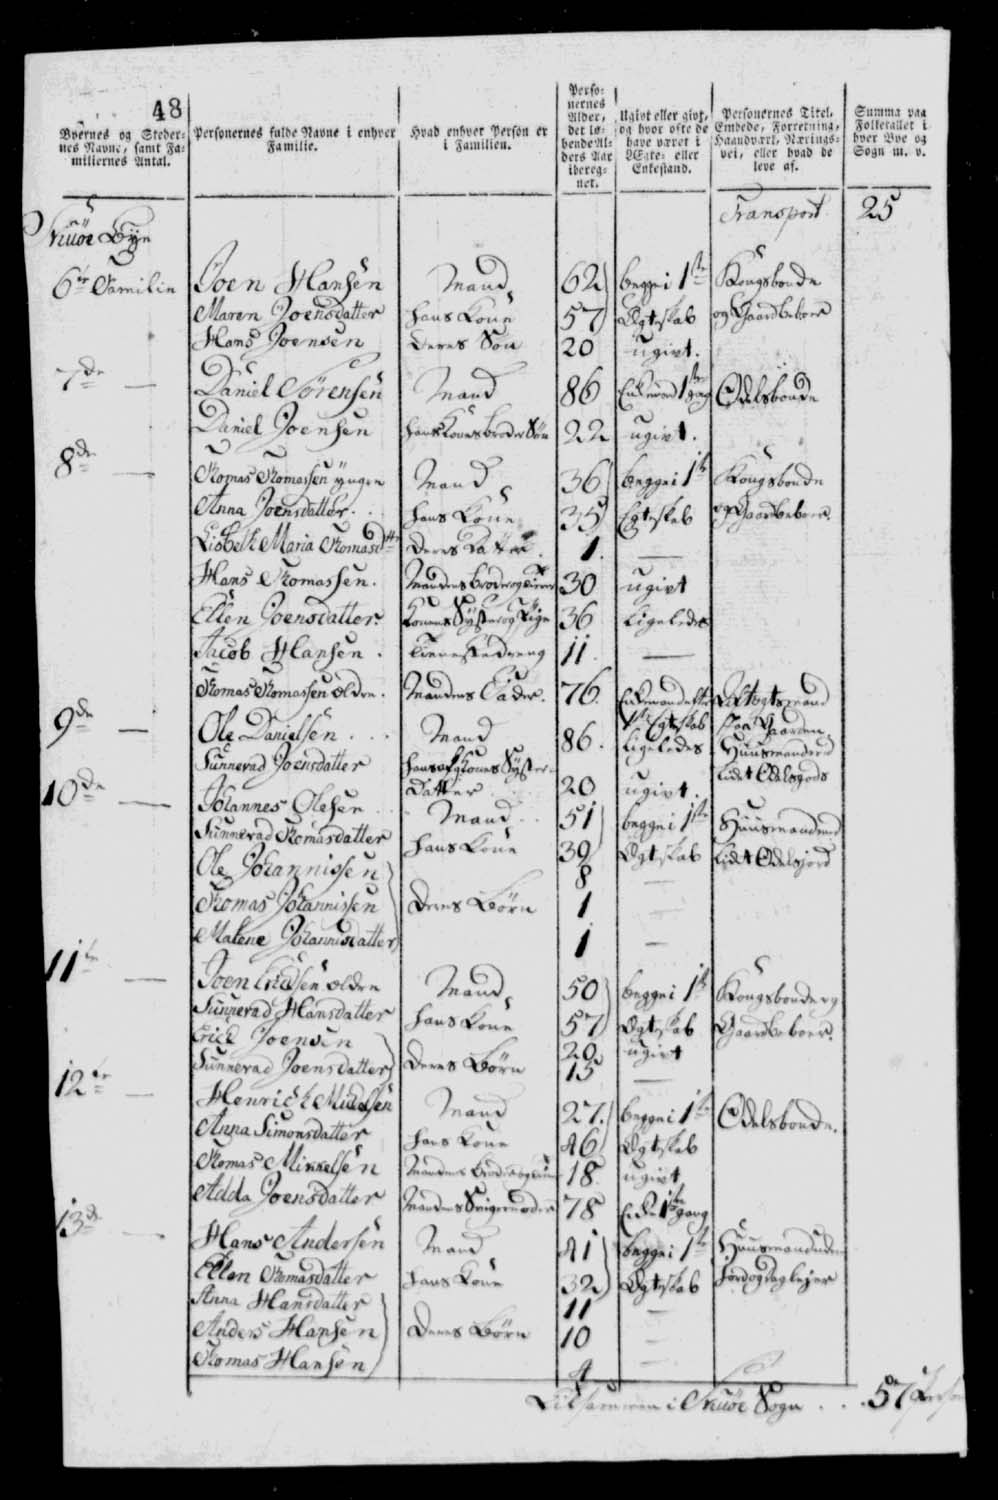 48
Byernes og Steder-
nes Navne, samt Fa-
miliernes Antal.
Personernes fulde Navne i enhver
Familie.
Hvad enhver Person er
i Familien.
Perso-
nernes
Alder,
det lø-
bende Al-
ders Aar
ibereg-
net.
Ugivt eller givt,
og hvor ofte de
have været i
Ægte- eller
Enkestand.
Personernes Titel,
Embede, Forretning,
Haandværk, Nærings-
vei, eller hvad de
leve af.
Summa paa
Folketallet i
hver Bye og
Sogn m. v.
Transport 25
Skuöe Bye
6te Familie Joen Hansen Mand 62 begge i 1ste Kongsbonde
Maren Joensdatter hans Kone 57 Ægteskab og Gaardbeboer
Hans Joensen deres Søn 20 ugivt.
7de — Daniel Sörensen Mand 86 Enkemand 1ste gang Odelsbonde
Daniel Joensen hans Kones Broder Søn 22 ugivt.
8de — Thomas Thomassen yngre Mand 36 begge i 1ste Kongsbonde
Anna Joensdatter. hans Kone 35 Ægteskab og Gaardbeboer.
Lisbeth Maria Thomasdttr deres Datter. 1. —
Hans Thomassen. Mandens Broder og 30 ugivt
Ellen Joensdatter. Konens Syster og Pige 36 Ligeledes
Jacob Hansen. Tienestedreng 11. —
Thomas Thomassen ældre. Mandens Fader. 76. Enkemand efter Aftægtsmand
1ste Ægteskab paa Gaarden
9de — Ole Danielsen... Mand 86. ligeledes Huusmand med
Sunnevad Joensdatter hans afg Kones Syster- lidet Odelsgods
Datter.. 20 ugivt.
10de — Johannes Olesen.. Mand.. 51 begge i 1ste Huusmand med
Sunnevad Thomasdatter hans Kone 39 Ægteskab lidet Odelsjord
Ole Johannissen 8 —
Thomas Johannissen deres Børn 1 —
Malene Johannisdatter 1 —
11te — Joen Ericsen ældre Mand 50 begge i 1ste Kongsbonde og
Sunnevad Hansdatter hans Kone 57 Ægteskab Gaardbeboer.
Erich Joensen 20 ugivt
Sunnevad Joensdatter deres Børn 15 —
12te — Henrich Mickelsen Mand 27. begge i 1ste Odelsbonde.
Anna Simonsdatter hans Kone 46 Ægteskab
Thomas Mikkelsen Mandens Broder og 18. ugivt
Adda Joensdatter Mandens Svigermoder 78 Enke 1ste gang
13de — Hans Andersen Mand 41 begge i 1ste Huusmand uden
Ellen Thomasdatter hans Kone 32 Ægteskab Jord og Daglejer
Anna Hansdatter 11 —
Anders Hansen deres Børn 10 —
Thomas Hansen 4 —
Tilsammen i Skuöe Sogn... 57